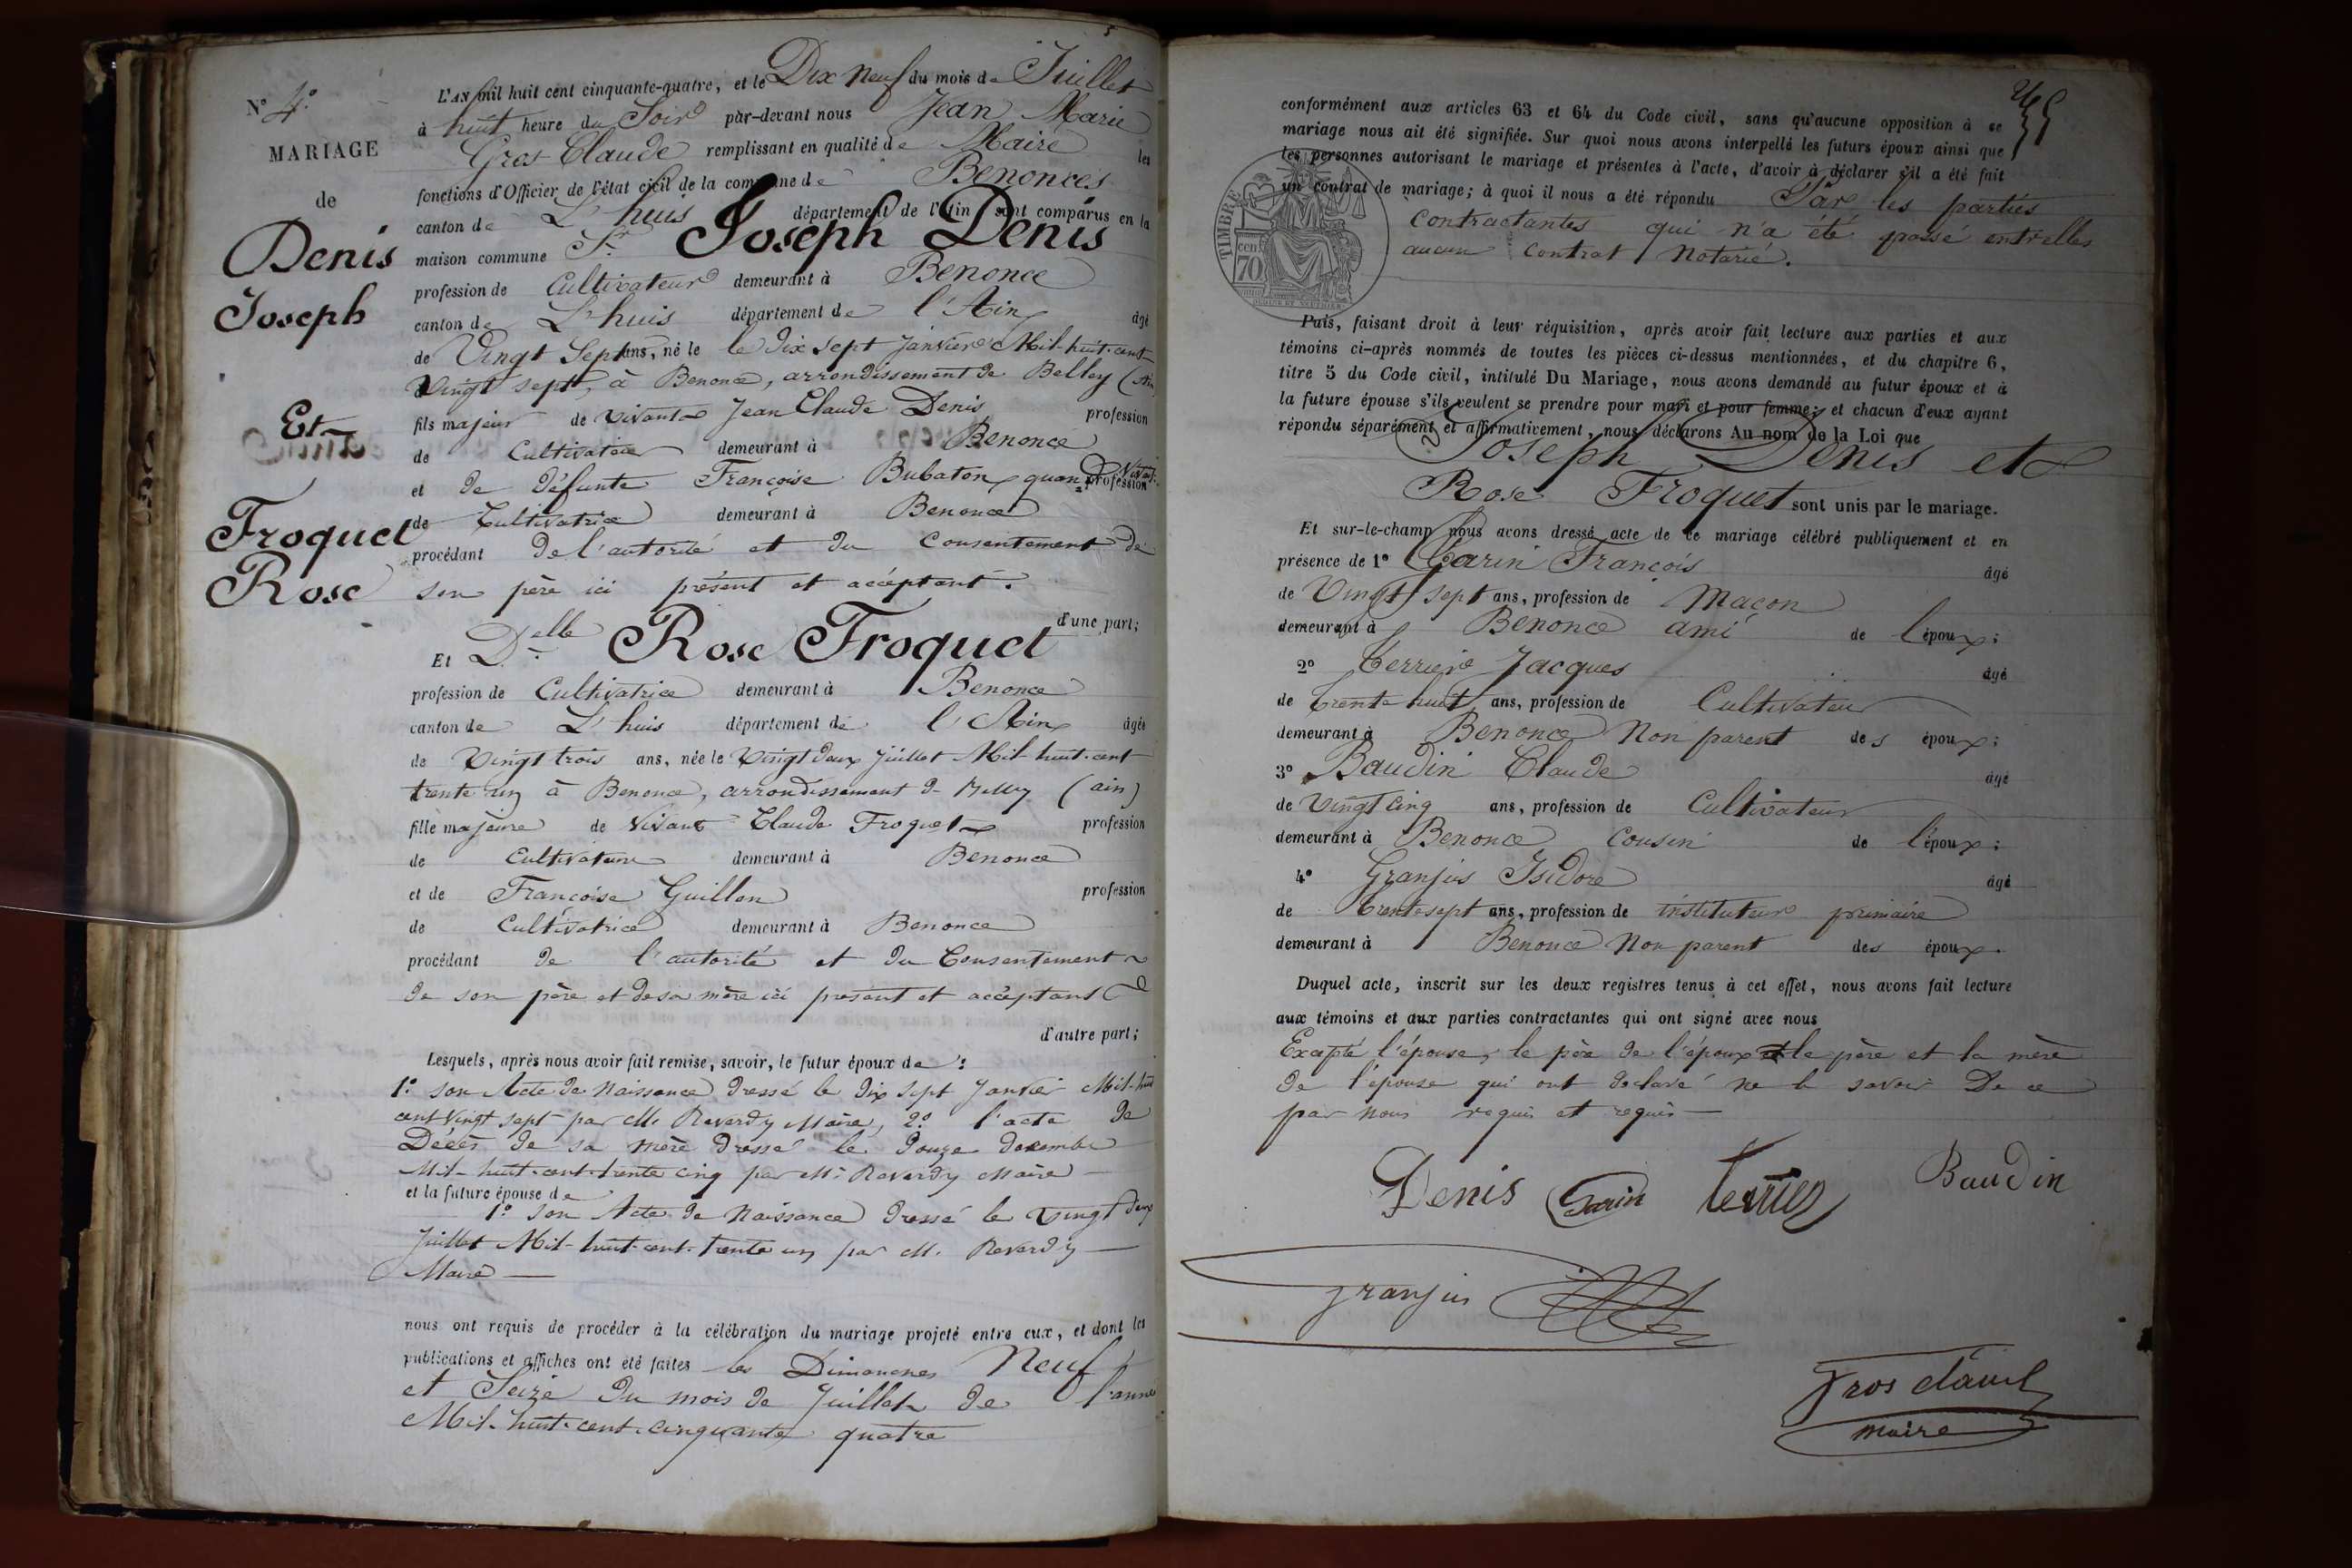 N° 4°
MARIAGE
de
Denis
Joseph
Et
Froquet
Rose
L'AN mil huit cent cinquante-quatre, et le Dix Neuf du mois de Juillet
à huit heure du Soir par-devant nous Jean Marie
Gros Claude remplissant en qualité de Maire les
fonctions d'Officier de l'état civil de la commune de Benonces
canton de L'huis département de l'Ain sont comparus en la
maison commune Sr. Joseph Denis
profession de Cultivateur demeurant à Benonce
canton de L'huis département de l'Ain âgé
de Vingt Sept ans, né le le dix sept Janvier Mil-huit-cent
Vingt sept, à Benonce, arrondissement de Belley (Ain
fils majeur de vivant Jean Claude Denis profession
de Cultivateur demeurant à Benonce
et de défunte Françoise Bubaton quand profession
de Cultivatrice demeurant à Benonce
procédant de l'autorité et du Consentement de
son père ici présent et accéptant.
d'une part;
Et Delle Rose Froquet
profession de Cultivatrice demeurant à Benonce
canton de L'huis département de l'Ain âgée
de Vingt trois ans, née le Vingt deux Juillet Mil-huit-cent
trente un à Benonce, arrondissement de Belley (ain)
fille majeure de Vivant Claude Froquet profession
de Cultivateur demeurant à Benonce
et de Françoise Guillon profession
de Cultivatrice demeurant à Benonce
procédant de l'autorité et du Consentement
de son père et de sa mère ici présent et accèptant
d'autre part;
Lesquels, après nous avoir fait remise, savoir, le futur époux de :
1° son Acte de Naissance dressé le dix sept Janvier Mil-huit
cent vingt sept par M. Reverdy Maire, 2° l'acte de
Décès de sa mère dressé le douze decembre
Mil-huit-cent-trente cinq par Mr Reverdy Maire
et la future épouse de
1° son Acte de Naissance dressé le vingt deux
Juillet Mil-huit-cent-trente un par M. Reverdy
Maire
nous ont requis de procéder à la célébration du mariage projeté entre eux, et dont les
publications et affiches ont été faites les Dimanches Neuf
et Seize du mois de Juillet de l'année
Mil-huit-cent-cinquante quatre
conformément aux articles 63 et 64 du Code civil, sans qu'aucune opposition à ce
mariage nous ait été signifiée. Sur quoi nous avons interpellé les futurs époux ainsi que
les personnes autorisant le mariage et présentes à l'acte, d'avoir à déclarer s'il a été fait
un contrat de mariage; à quoi il nous a été répondu Par les parties
contractantes qui n'a été passé entr'elles
aucun contrat Notarié.
TIMBRE
cen
70
Puis, faisant droit à leur réquisition, après avoir fait lecture aux parties et aux
témoins ci-après nommés de toutes les pièces ci-dessus mentionnées, et du chapitre 6,
titre 5 du Code civil, intitulé Du Mariage, nous avons demandé au futur époux et à
la future épouse s'ils veulent se prendre pour mari et pour femme; et chacun d'eux ayant
répondu séparément et affirmativement, nous déclarons Au nom de la Loi que
Joseph Denis et
Rose Froquet sont unis par le mariage.
Et sur-le-champ nous avons dressé acte de ce mariage célébré publiquement et en
présence de 1° Garin François âgé
de Vingt sept ans, profession de Maçon
demeurant à Benonce ami de l'époux;
2° Terrier Jacques âgé
de trente huit ans, profession de Cultivateur
demeurant à Benonce Non parent des époux;
3° Baudin Claude âgé
de vingt cinq ans, profession de Cultivateur
demeurant à Benonce Cousin de l'époux;
4° Granjus Isidore âgé
de trente sept ans, profession de instituteur primaire
demeurant à Benonce Non parent des époux.
Duquel acte, inscrit sur les deux registres tenus à cet effet, nous avons fait lecture
aux témoins et aux parties contractantes qui ont signé avec nous
Excepté l'épouse, le père de l'époux et le père et la mère
de l'épouse qui ont déclaré ne le savoir De ce
par nous requis et requis
Denis Garin Terrier Baudin
Granjus
Gros claude
maire